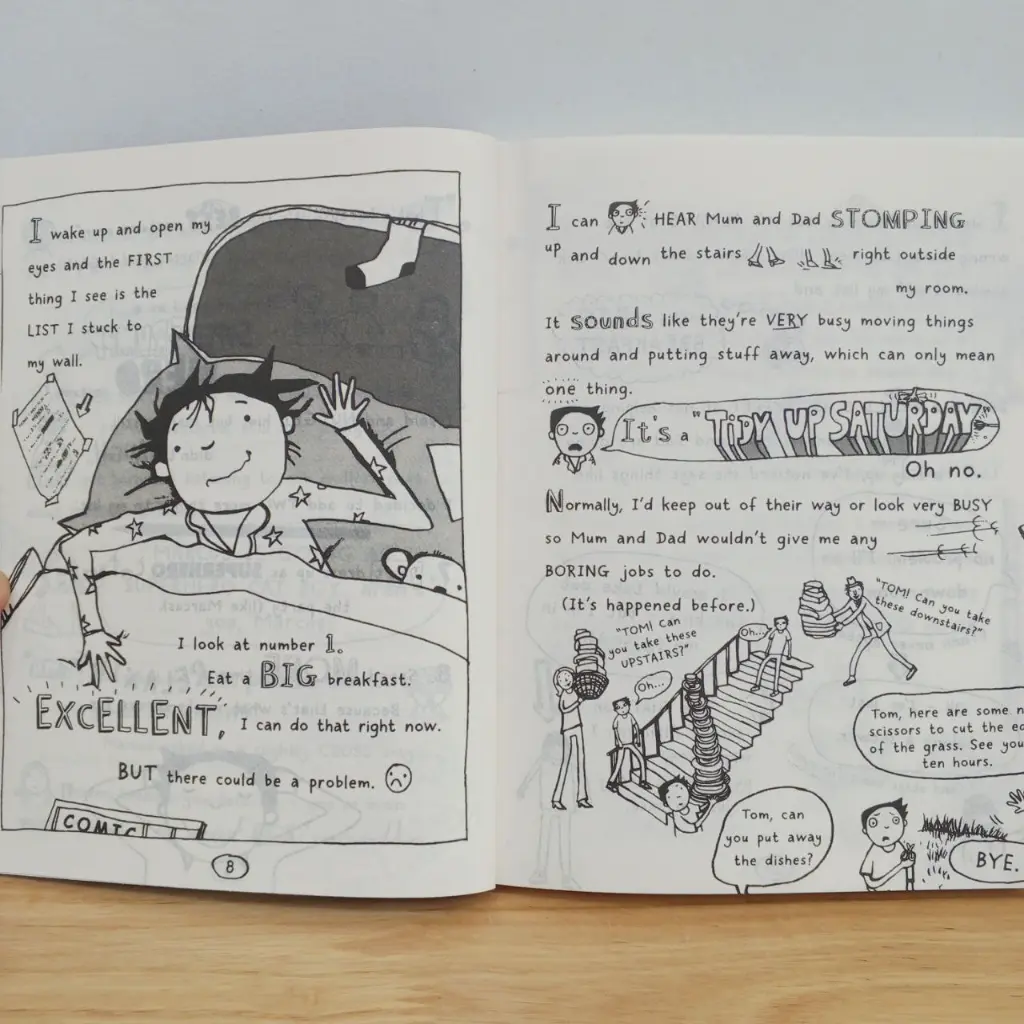 I wake up and open my
eyes and the FIRST
thing I see is the
LIST I stuck to
my wall.
I look at number 1.
Eat a BIG breakfast.
EXCELLENT, I can do that right now.
BUT there could be a problem.
COMIC
8
I can HEAR Mum and Dad STOMPING
up and down the stairs right outside
my room.
It sounds like they're VERY busy moving things
around and putting stuff away, which can only mean
one thing.
It's a "TIDY UP SATURDAY"
Oh no.
Normally, I'd keep out of their way or look very BUSY
so Mum and Dad wouldn't give me any
BORING jobs to do.
(It's happened before.)
"TOM! Can
you take these
UPSTAIRS?"
Oh...
Oh...
"TOM! Can you take
these downstairs?"
Tom, here are some
scissors to cut the
of the grass. See you
ten hours.
Tom, can
you put away
the dishes?
BYE.